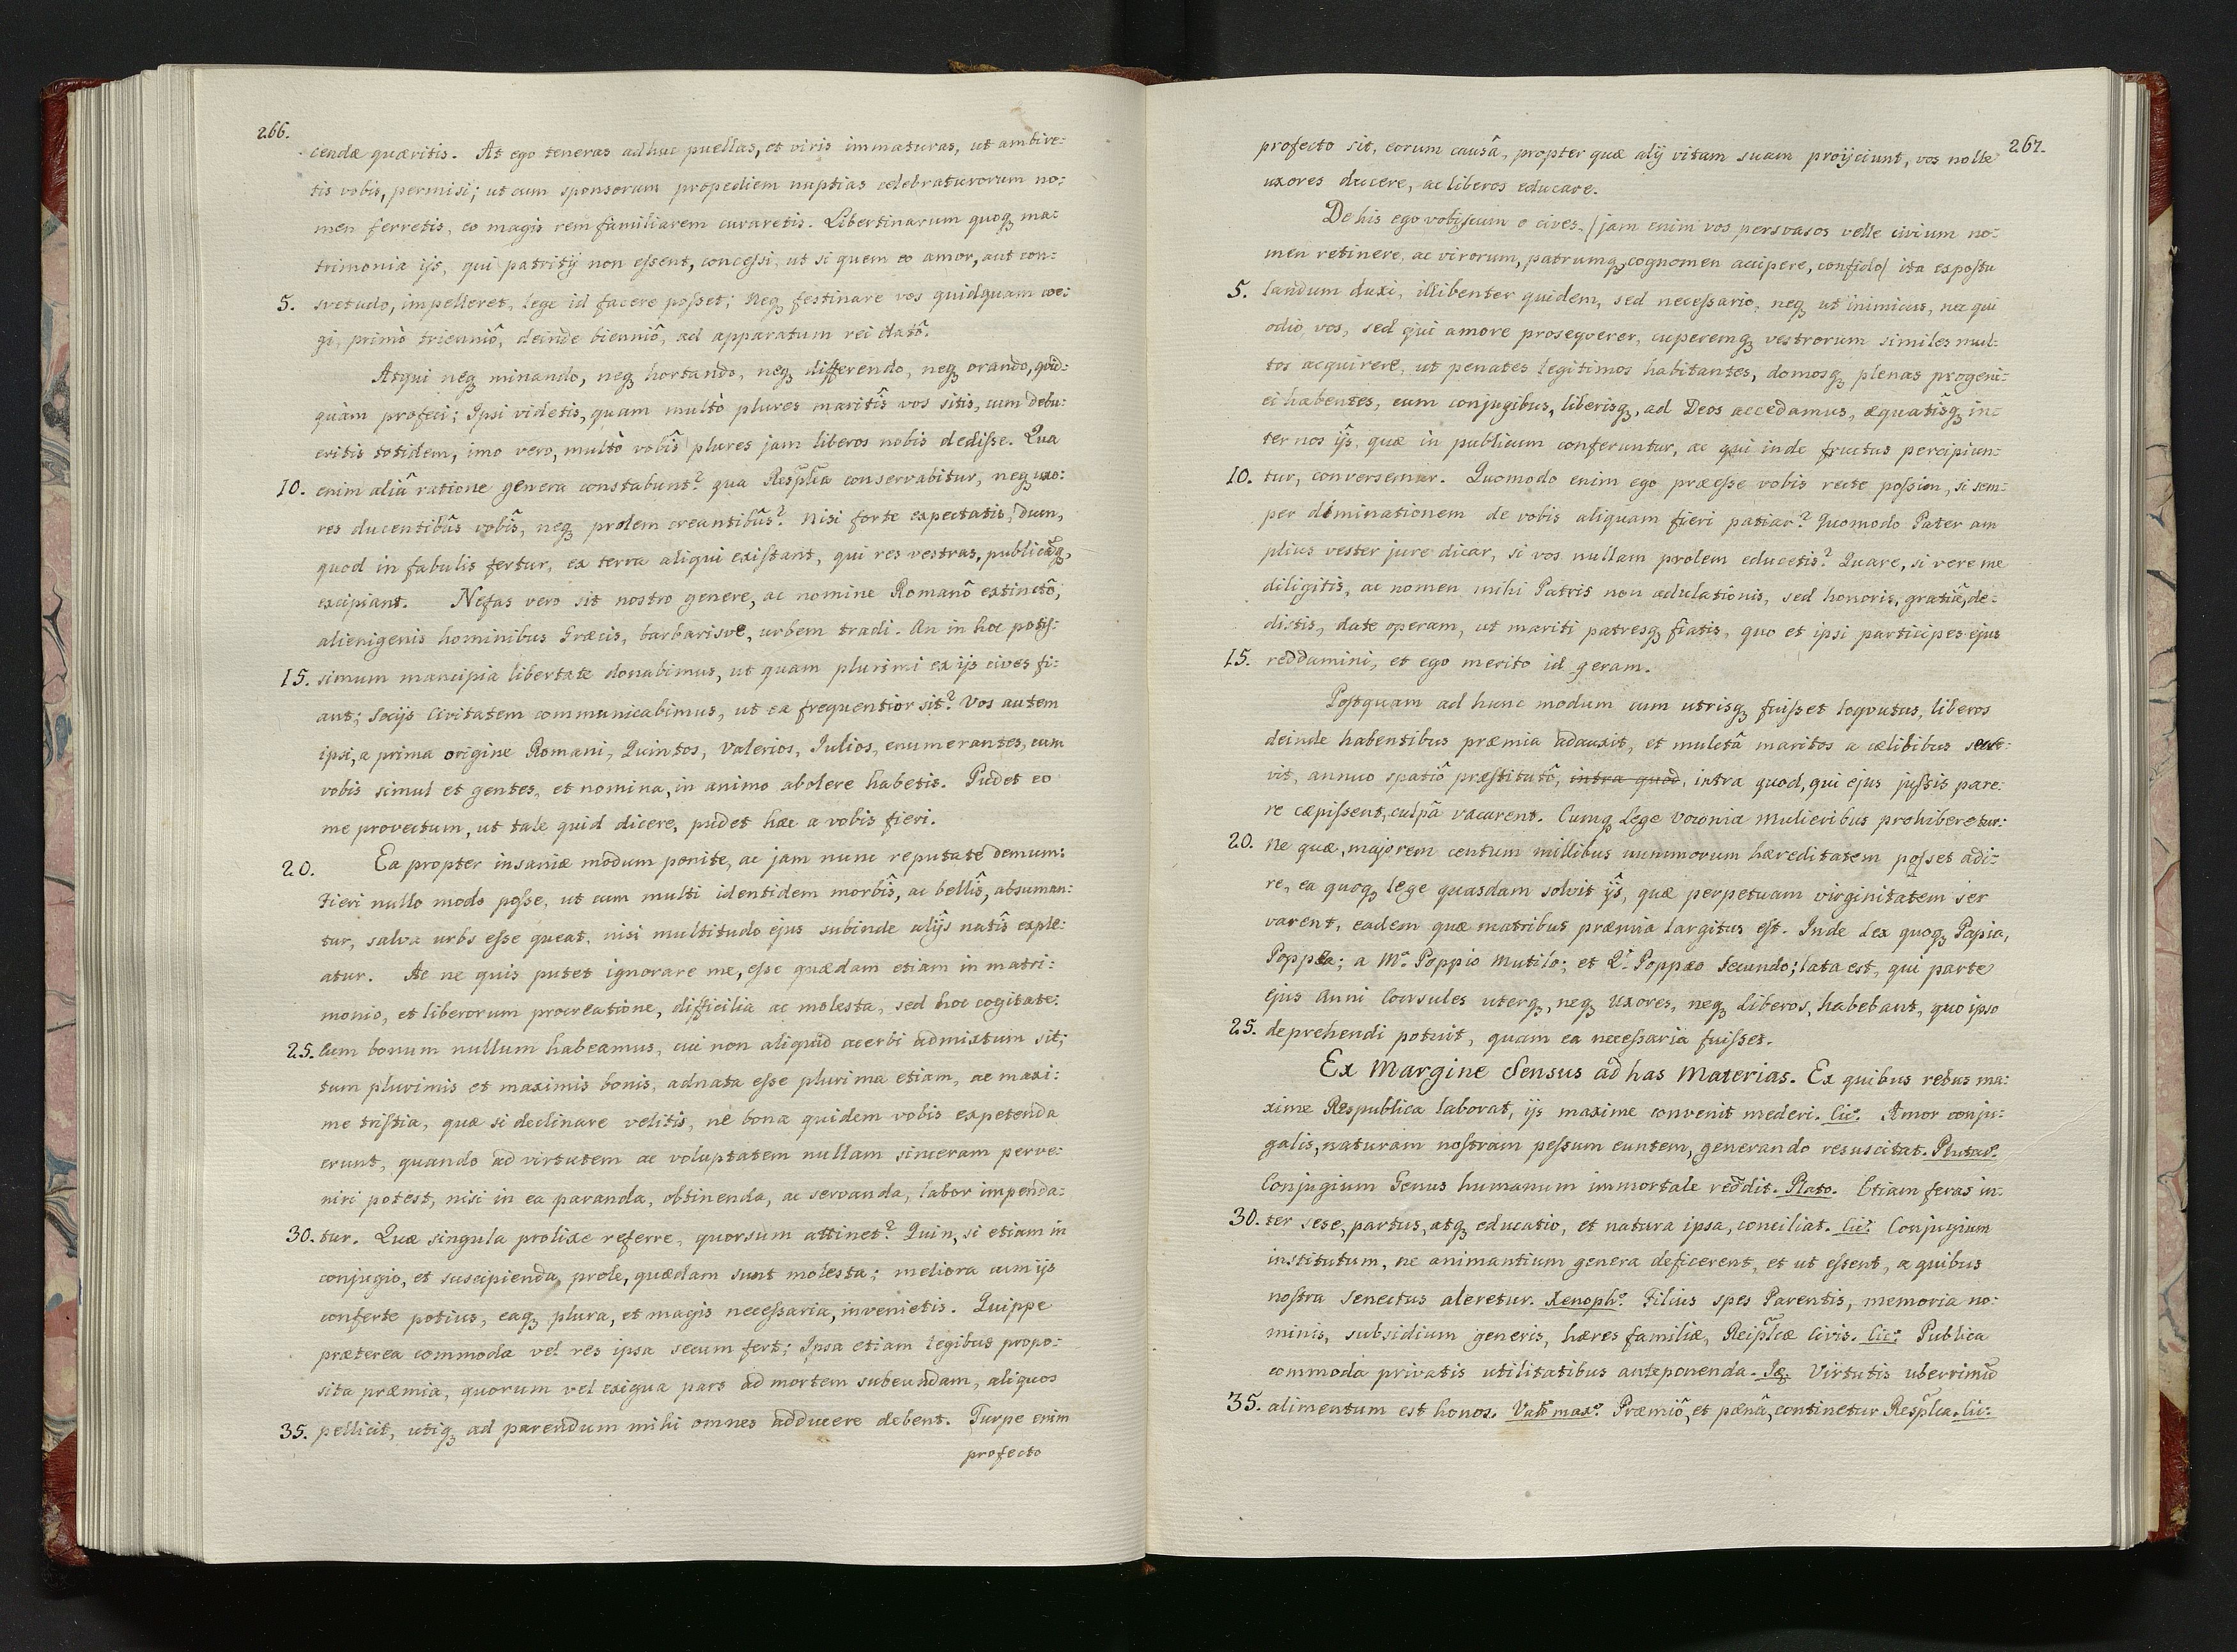 266.
cendæ quæritis. At ego teneras adhuc puellas, et viris immaturas, ut ambire:
tis vobis, permisi; ut cum sponsorum propediem nuptias celebraturorum no:
men ferretis, eo magis rem familiarem curaretis. Libertinarum quoqꝫ ma:
trimonia ijs, qui patritij non eſsent, conceſsi, ut si quem eo amor, aut con:
5. svetudo, impelleret, lege id facere poſset; Neqꝫ festinare vos quidquam coe:
gi, primò trienniô, deinde bienniô, ad apparatum rei datô.
Atqui neqꝫ minando, neqꝫ hortando, neqꝫ differendo, neqꝫ orando, quid:
quàm profeci; Ipsi videtis, quam multò plures maritîs vos sitis, cum debu:
eritis totidem, imo vero, multò vobîs plures jam liberos nobis dediſse. Qua
10. enim aliâ ratione genera constabunt? qua Resp̃lca conservabitur, neqꝫ uxo:
res ducentibûs vobîs, neqꝫ prolem creantibûs? Nisi forte expectatis, dum,
quod in fabulis fertur, ex terra aliqui exiſtant, qui res vestras, publicãqꝫ,
excipiant. Nefas vero sit nostro genere, ac nomine Romanô extinctô,
alienigenis hominibus Græcis, barbarisve, urbem tradi. An in hoc potiſ:
15. simum mancipia libertate donabimus, ut quam plurimi ex ijs cives fi:
ant; Socijs Civitatem communicabimus, ut ea frequentior sit? Vos autem
ipsi, a prima origine Romani, Quintos, Valerios, Julios, enumerantes, cum
vobis simul et gentes, et nomina, in animo abolere habetis. Pudet eo
me provectum, ut tale quid dicere, pudet hæc a vobis fieri.
20. Ea propter insaniæ modum ponite, ac jam nunc reputate demum:
Fieri nullo modo poſse, ut cum multi identidem morbîs, ac bellîs, absuman:
tur, salva urbs eſse queat, nisi multitudo ejus subinde alijs natîs exple:
atur. Ac ne quis putet ignorare me, eſse quædam etiam in matri:
monio, et liberorum procreatione, difficilia ac molesta, sed hoc cogitate:
25. Cum bonum nullum habeamus, cui non aliquid acerbi admixtum sit;
tum plurimis et maximis bonis, adnata eſse plurima etiam, ac maxi:
me triſtia, quæ si declinare velitis, ne bona quidem vobis expetenda
erunt, quando ad virtutem ac voluptatem nullam sinceram perve:
niri potest, nisi in ea paranda, obtinenda, ac servanda, labor impenda:
30. tur. Quæ singula prolixe referre, quorsum attinet? Quin, si etiam in
conjugio, et suscipienda prole, quædam sunt molesta; meliora cum ijs
conferte potius, eaqꝫ plura, et magis neceſsaria, invenietis. Quippe
præterea commoda vel res ipsa secum fert; Ipsa etiam legibus propo:
sita præmia, quorum vel exigua pars ad mortem subeundam, aliquos
35. pellicit, utiqꝫ ad parendum mihi omnes adducere debent. Turpe enim
profecto
267.
profecto sit, eorum causâ, propter quæ alij vitam suam proijciunt, vos nolle
uxores ducere, ac liberos educare.
De his ego vobiscum o cives, / jam enim vos persvasos velle civium no:
men retinere, ac virorum, patrumqꝫ cognomen accipere, confido / ita expoſtu
5. landum duxi, illibenter quidem, sed neceſsario, neqꝫ ut inimicus, nec qui
odio, vos, sed qui amore proseqverer, cuperemqꝫ vestrorum similes mul:
tos acquirere, ut penates legitimos habitantes, domosqꝫ plenas progeni:
ei habentes, cum conjugibus, liberisqꝫ, ad Deos accedamus, æquatîsqꝫ in:
ter nos ijs, quæ in publicum conferuntur, ac qui inde fructus percipiun:
10. tur, conversemur. Quomodo enim ego præeſse vobis recte poſsim, si sem:
per diminationem de vobis aliquam fieri patiar? Quomodo Pater am
plius vester jure dicar, si vos nullam prolem educetis? Quare, si vere me
diligitis, ac nomen mihi Patris non adulationis, sed honoris, gratiâ, de:
distis, date operam, ut mariti patresqꝫ fiatis, quo et ipsi participes ejus
15. reddamini, et ego merito id geram.
Poſtquam ad hunc modum cum utrisqꝫ fuiſset loqvutus, liberos
deinde habentibus præmia adauxit, et mulctâ maritos a cælibibus secre:
vit, annuo spatiô præſtitutô, intra quod, intra quod, qui ejus juſsis pare:
re cæpiſsent, culpâ vacarent. Cumqꝫ Lege Voconia Mulieribus prohiberetur:
20. Ne quæ, majorem centum millibus nummorum hæreditatem poſset adi:
re, ea quoqꝫ lege quasdam solvit ijs, quæ perpetuam virginitatem ser
varent, eadem quæ matribus præmia largitus eſt. Inde Lex quoqꝫ Papia,
Poppæa; a M: Poppio Mutilo; et Q: Poppæo Secundo; lata est, qui parte
Ejus Anni Consules uterqꝫ, neqꝫ Uxores, neqꝫ Liberos, habebant, quo ipso
25. deprehendi potuit, quam ea neceſsaria fuiſset.
Ex Margine Sensus ad has Materias. Ex quibus rebus ma:
xime Respublica laborat, ijs maxime convenit mederi. Cic: Amor conju:
galis, naturam noſtram peſsum euntem, generando resuscitat. Plutar:
Conjugium Genus humanum immortale reddit. Plato. Etiam feras in:
30. ter sese, partus, atqꝫ educatio, et natura ipsa, conciliat. Cic: Conjugium
institutum, ne animantium genera deficerent, et ut eſsent, a quibus
noſtra senectus aleretur. Xenoph: Filius spes Parentis, memoria no:
minis, subsidium generis, hæres familiæ, Reip̃lcæ Civis. Cic: Publica
commoda privatis utilitatibus anteponenda. Id. Virtutis uberrimũ
35. alimentum est honos. Val: max: Præmiô, et pænâ, continetur Resp̃lca. Cic: